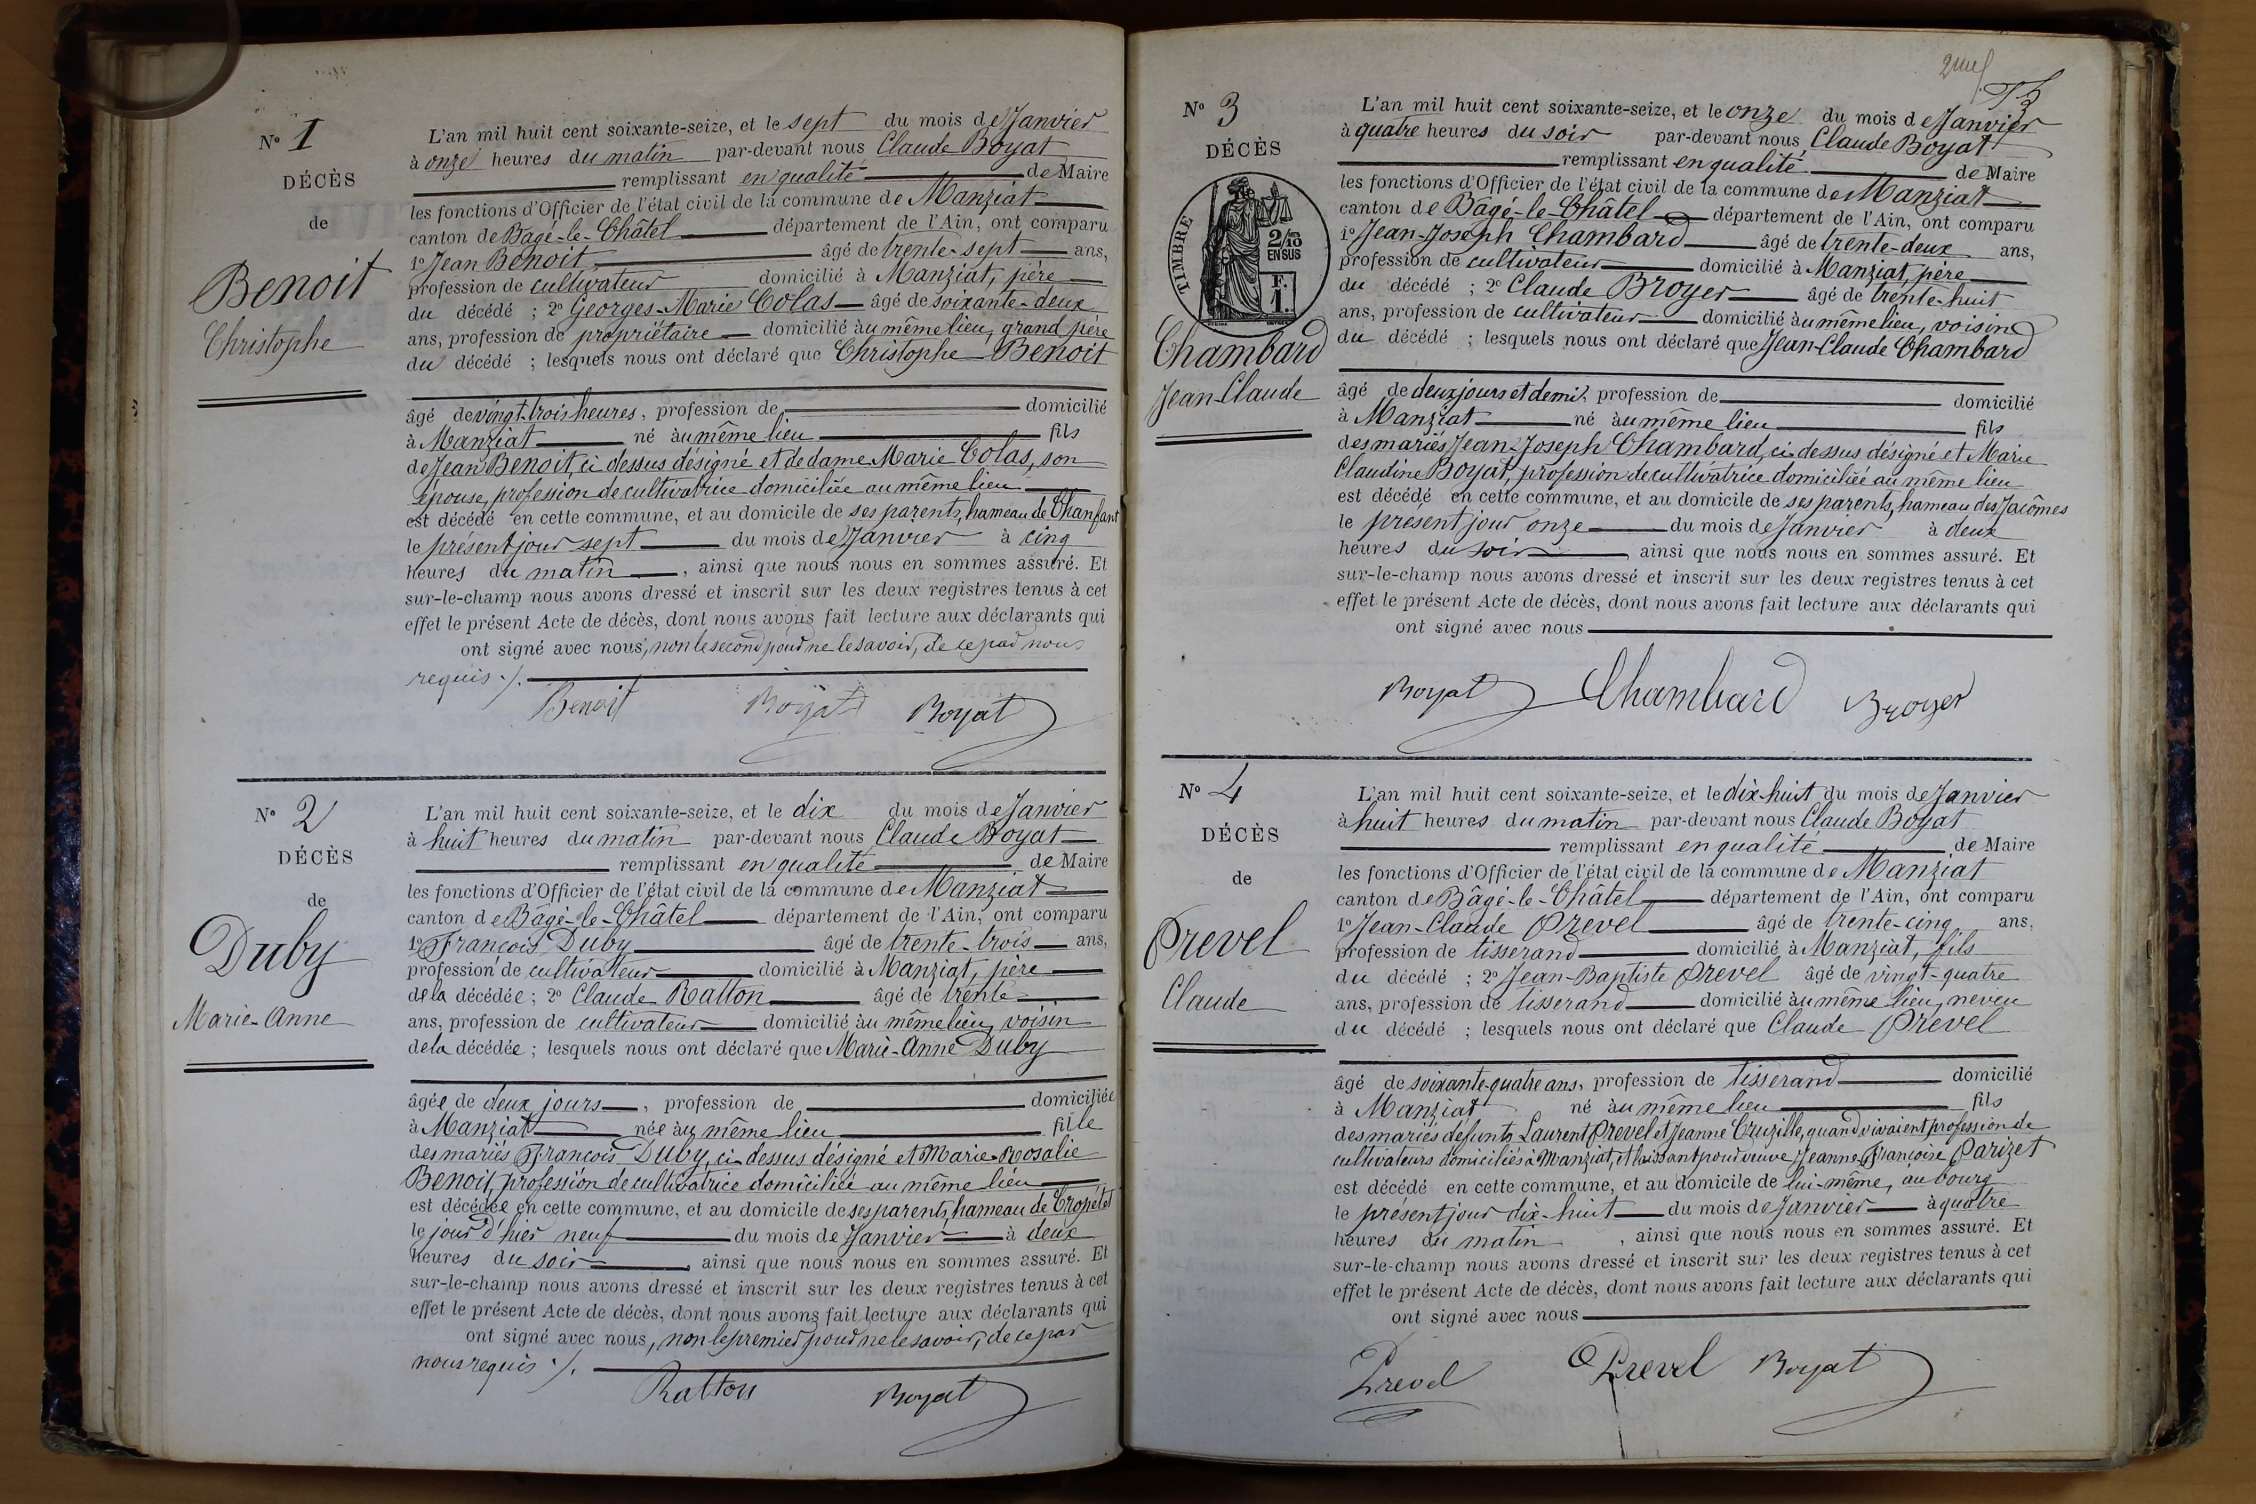 N° 1
DÉCÈS
de
Benoit
Christophe
L'an mil huit cent soixante-seize, et le sept du mois de Janvier
à onze heures du matin par-devant nous Claude Boyat
remplissant en qualité de Maire
les fonctions d'Officier de l'état civil de la commune de Manziat
canton de Bâgé-le-Châtel département de l'Ain, ont comparu
1° Jean Benoit âgé de trente-sept ans,
profession de cultivateur domicilié à Manziat, père
du décédé ; 2° Georges-Marie Colas âgé de soixante-deux
ans, profession de propriétaire domicilié au même lieu, grand père
du décédé ; lesquels nous ont déclaré que Christophe Benoit
âgé de vingt-trois heures, profession de domicilié
à Manziat né au même lieu fils
de Jean Benoit, ci dessus désigné et de dame Marie Colas, son
épouse, profession de cultivatrice domiciliée au même lieu
est décédé en cette commune, et au domicile de ses parents, hameau de Chanfant
le présent jour sept du mois de Janvier à cinq
heures du matin, ainsi que nous nous en sommes assuré. Et
sur-le-champ nous avons dressé et inscrit sur les deux registres tenus à cet
effet le présent Acte de décès, dont nous avons fait lecture aux déclarants qui
ont signé avec nous, non le second pour ne le savoir, de ce par nous
requis ./.
Benoit Boyat Boyat
N° 2
DÉCÈS
de
Duby
Marie-Anne
L'an mil huit cent soixante-seize, et le dix du mois de Janvier
à huit heures du matin par-devant nous Claude Boyat
remplissant en qualité de Maire
les fonctions d'Officier de l'état civil de la commune de Manziat
canton de Bâgé-le-Châtel département de l'Ain, ont comparu
1° François Duby âgé de trente-trois ans,
profession de cultivateur domicilié à Manziat, père
de la décédée ; 2° Claude Ratton âgé de trente
ans, profession de cultivateur domicilié au même lieu, voisin
de la décédée ; lesquels nous ont déclaré que Marie-Anne Duby
âgée de deux jours, profession de domiciliée
à Manziat née au même lieu fille
des mariés François Duby, ci-dessus désigné et Marie-Rosalie
Benoit, profession de cultivatrice domiciliée au même lieu
est décédée en cette commune, et au domicile de ses parents, hameau de Cropetet
le jour d'hier neuf du mois de Janvier à deux
heures du soir, ainsi que nous nous en sommes assuré. Et
sur-le-champ nous avons dressé et inscrit sur les deux registres tenus à cet
effet le présent Acte de décès, dont nous avons fait lecture aux déclarants qui
ont signé avec nous, non le premier pour ne le savoir, de ce par
nous requis ./.
Ratton Boyat
N° 3
DÉCÈS
TIMBRE
2/10
EN SUS
F.
1.
Chambard
Jean-Claude
L'an mil huit cent soixante-seize, et le onze du mois de Janvier
à quatre heures du soir par-devant nous Claude Boyat
remplissant en qualité de Maire
les fonctions d'Officier de l'état civil de la commune de Manziat
canton de Bâgé-le-Châtel département de l'Ain, ont comparu
1° Jean-Joseph Chambard âgé de trente-deux ans,
profession de cultivateur domicilié à Manziat, père
du décédé ; 2° Claude Broyer âgé de trente-huit
ans, profession de cultivateur domicilié au même lieu, voisin
du décédé ; lesquels nous ont déclaré que Jean-Claude Chambard
âgé de deux jours et demi, profession de domicilié
à Manziat né au même lieu fils
des mariés Jean-Joseph Chambard, ci-dessus désigné et Marie
Claudine Boyat, profession de cultivatrice domiciliée au même lieu
est décédé en cette commune, et au domicile de ses parents, hameau des Jacômes
le présent jour onze du mois de Janvier à deux
heures du soir ainsi que nous nous en sommes assuré. Et
sur-le-champ nous avons dressé et inscrit sur les deux registres tenus à cet
effet le présent Acte de décès, dont nous avons fait lecture aux déclarants qui
ont signé avec nous
Boyat Chambard Broyer
N° 4
DÉCÈS
de
Prevel
Claude
L'an mil huit cent soixante-seize, et le dix-huit du mois de Janvier
à huit heures du matin par-devant nous Claude Boyat
remplissant en qualité de Maire
les fonctions d'Officier de l'état civil de la commune de Manziat
canton de Bâgé-le-Châtel département de l'Ain, ont comparu
1° Jean-Claude Prevel âgé de trente-cinq ans,
profession de tisserand domicilié à Manziat, fils
du décédé ; 2° Jean-Baptiste Prevel âgé de vingt-quatre
ans, profession de tisserand domicilié au même lieu, neveu
du décédé ; lesquels nous ont déclaré que Claude Prevel
âgé de soixante-quatre ans, profession de tisserand domicilié
à Manziat né au même lieu fils
des mariés défunts Laurent Prevel et Jeanne Cruzille, quand vivaient profession de
cultivateurs domiciliés à Manziat, et laissant pour veuve Jeanne-Françoise Parizet
est décédé en cette commune, et au domicile de lui-même, au bourg
le présent jour dix-huit du mois de Janvier à quatre
heures du matin, ainsi que nous nous en sommes assuré. Et
sur-le-champ nous avons dressé et inscrit sur les deux registres tenus à cet
effet le présent Acte de décès, dont nous avons fait lecture aux déclarants qui
ont signé avec nous
Prevel Prevel Boyat